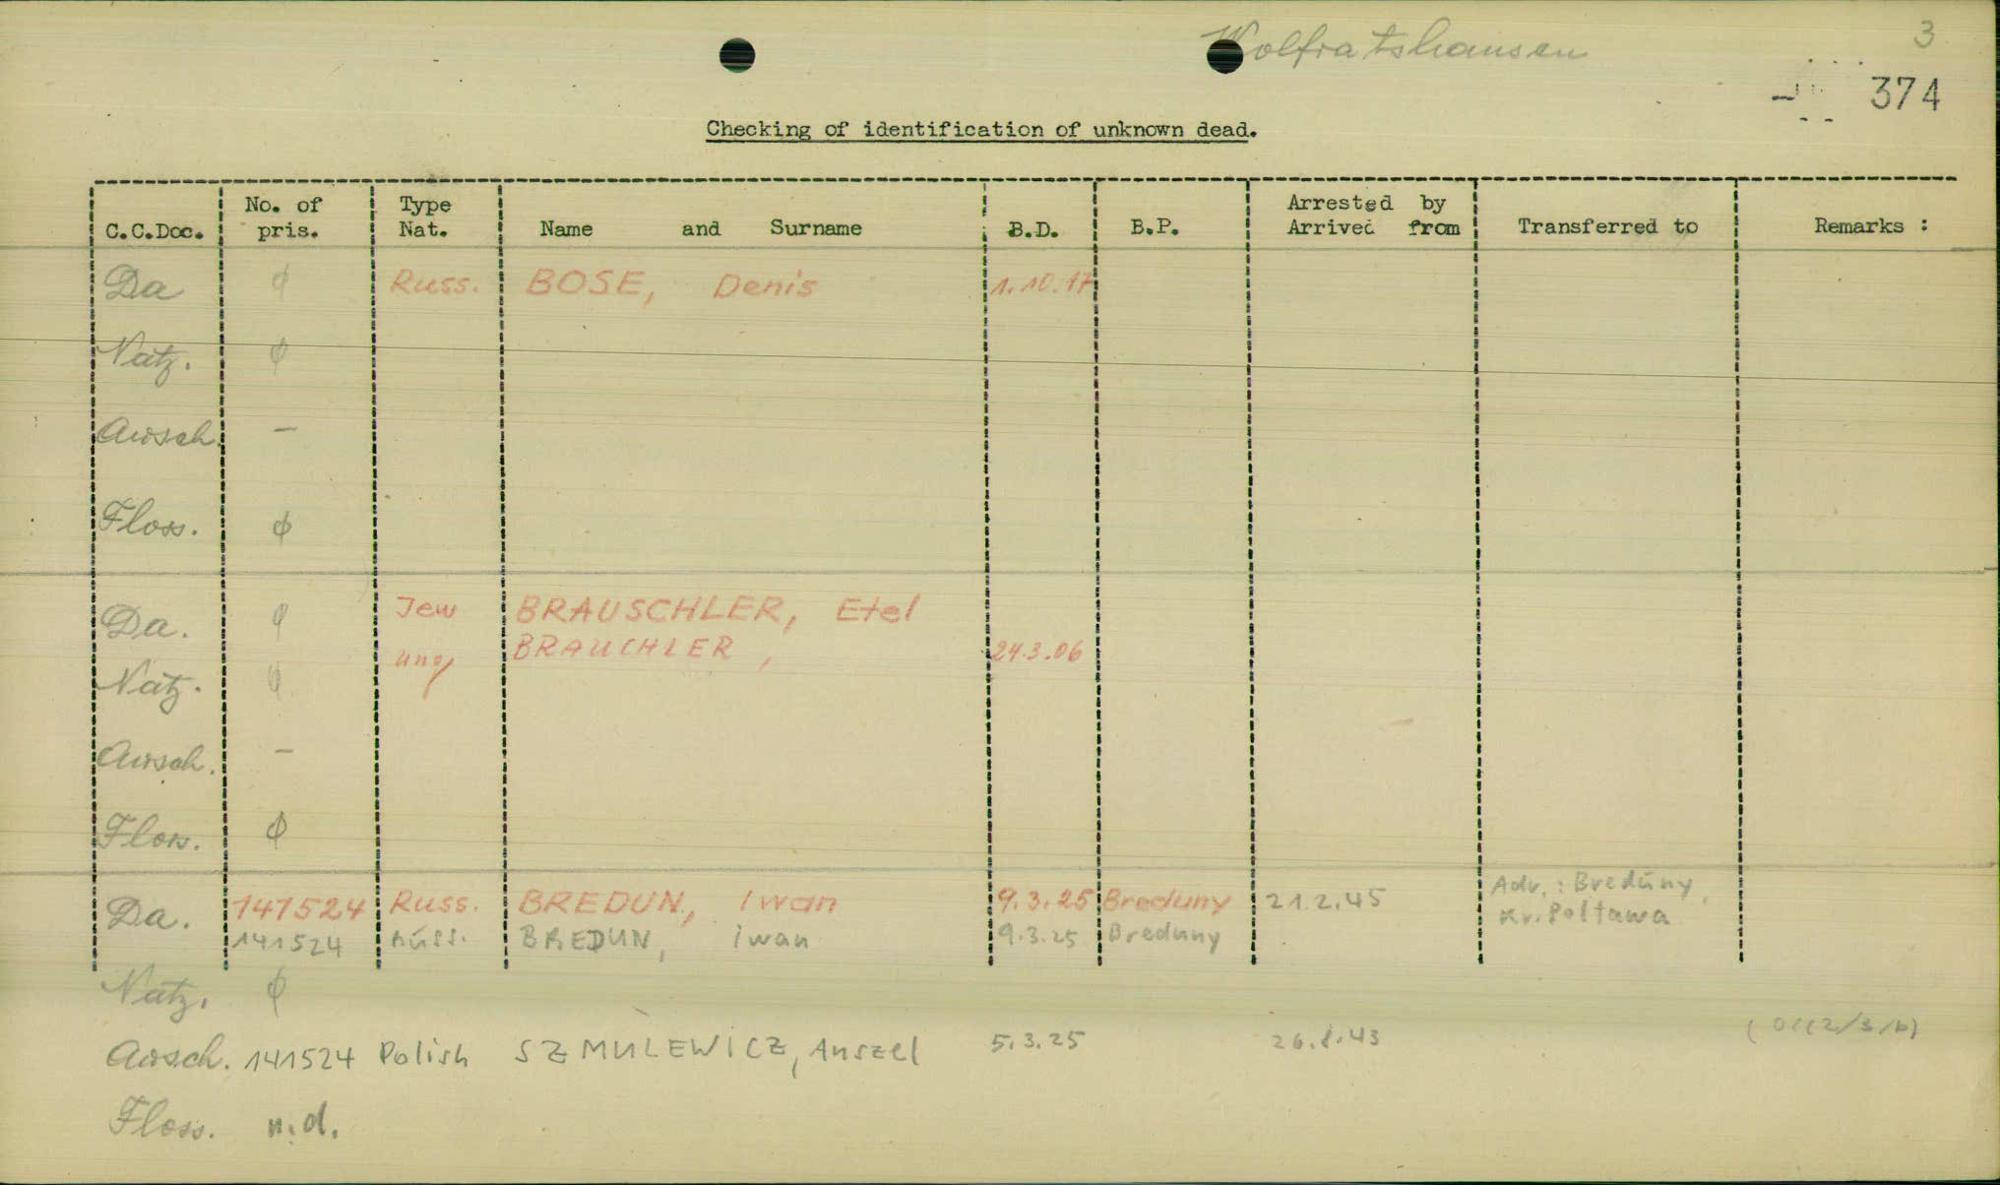 Wolfratshausen
3
374
Checking of identification of unknown dead.
C.C.Doc. No. of pris. Type Nat. Name and Surname B.D. B.P. Arrested by Arrived from Transferred to Remarks :
Da ϕ Russ. BOSE, Denis 1.10.17
Natz. ϕ
Ausch. —
Floss. ϕ
Da. ϕ Jew BRAUSCHLER, Etel
ung BRAUCHLER, 24.3.06
Natz. ϕ
Ausch. —
Floss. ϕ
Da. 141524 Russ. BREDUN, Iwan 9.3.25 Breduny 21.2.45 Adr.: Breduny, Kr. Poltawa
141524 Russ. BREDUN, iwan 9.3.25 Breduny
Natz. ϕ
Ausch. 141524 Polish SZMULEWICZ, Anszel 5.3.25 26.8.43
Floss. n.d.